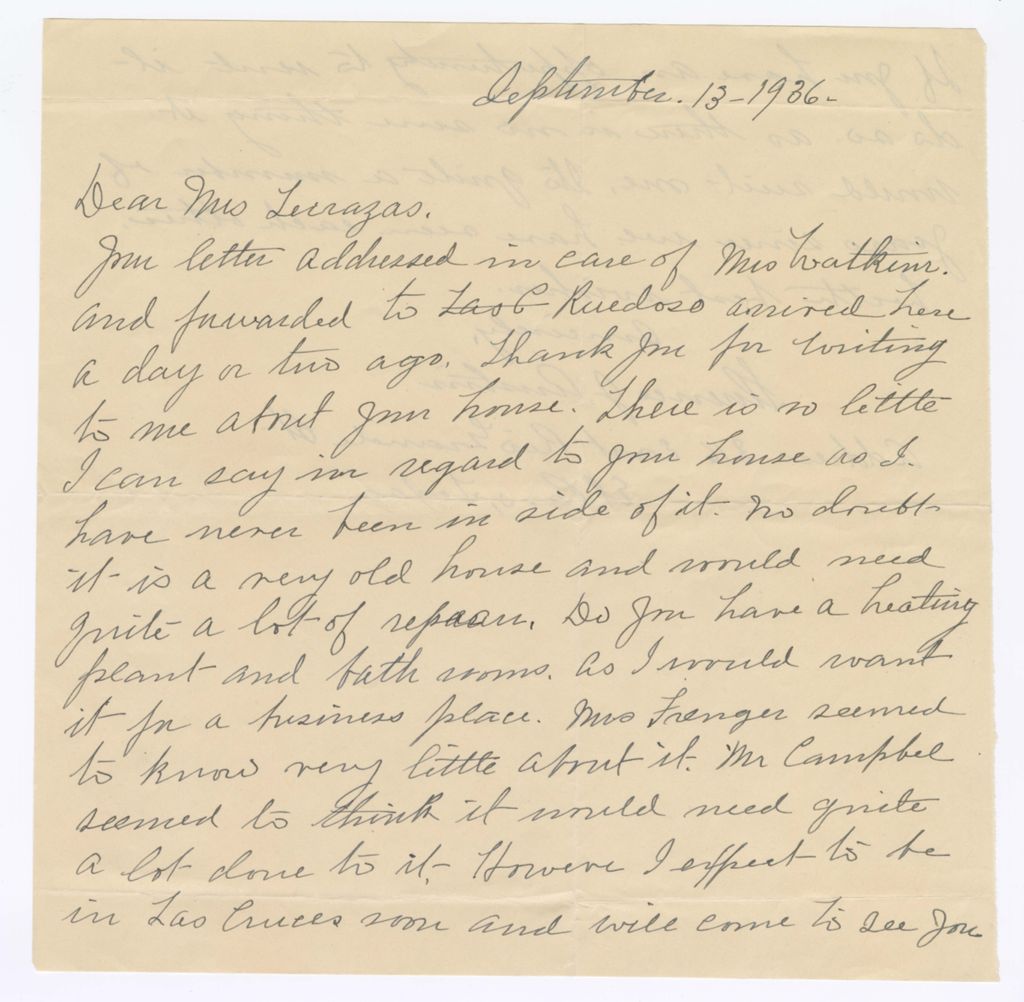 September. 13-1936-
Dear Mrs Terrazas.
Your letter addressed in care of Mrs Watkins.
and forwarded to Las C Ruedoso arrived here
a day or two ago. Thank you for writing
to me about your house. There is so little
I can say in regard to your house as I.
have never been in side of it. no doubt
it is a very old house and would need
quite a lot of repair. Do you have a heating
plant and bath rooms. as I would want
it for a business place. Mrs Frenger seemed
to know very little about it. Mr Campbel
seemed to think it would need quite
a lot done to it. However I expect to be
in Las Cruces soon and will come to see you